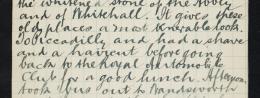 the whitened stone of the Abbey
and of Whitehall. It gives these
old places a most venerable look.
To Piccadilly and had a shave
and a haircut before going
back to the Royal Automobile
Club for a good lunch. Afternoon
took bus out to Wandsworth